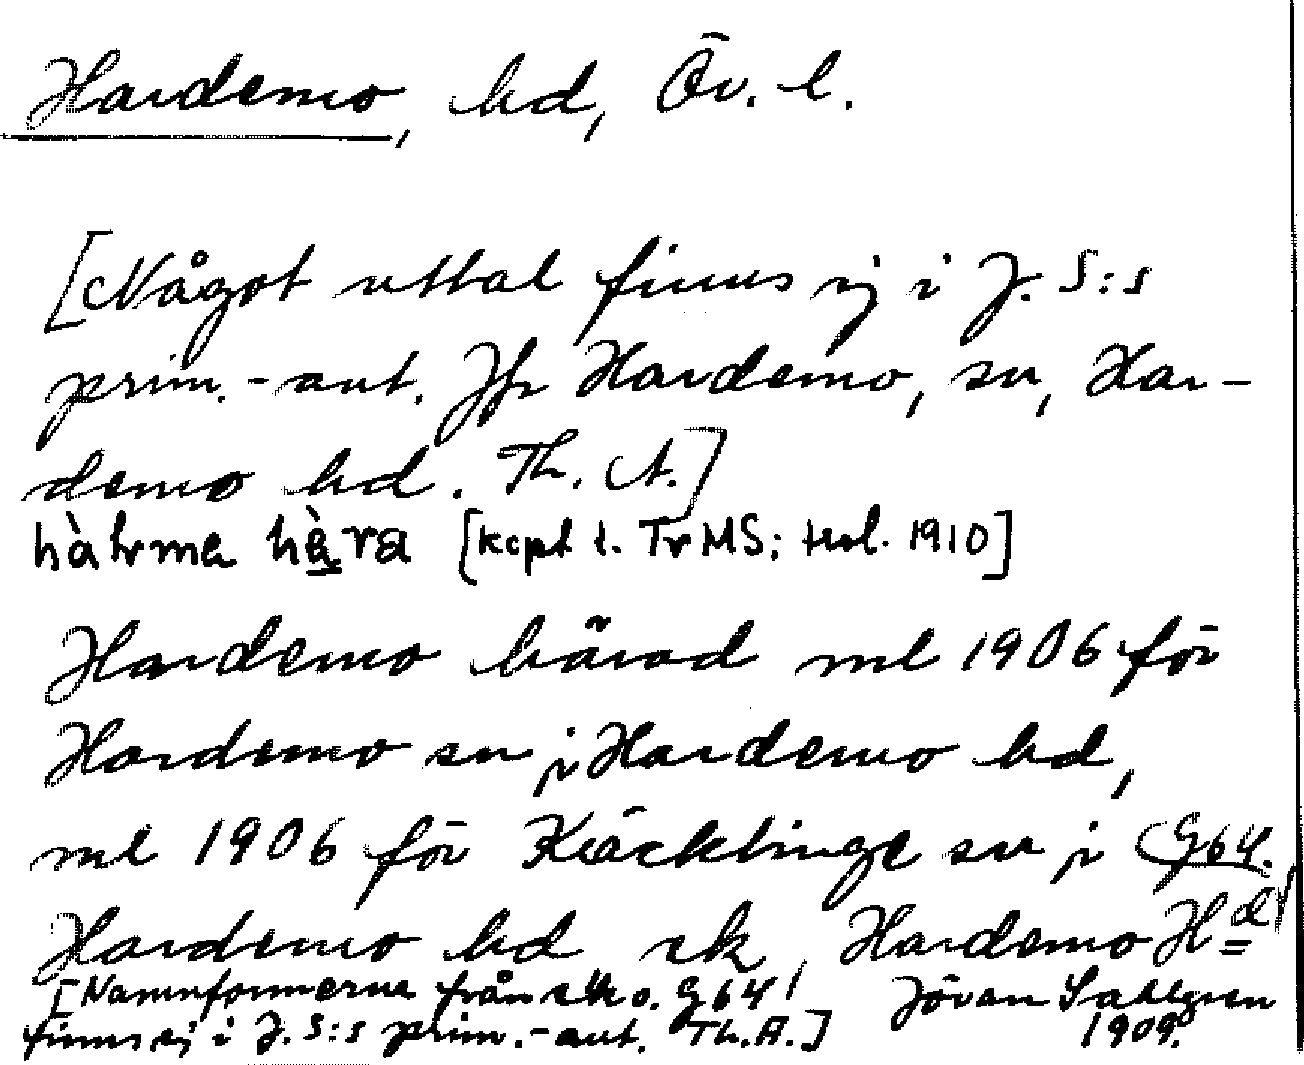 Hardemo, hd, Ör. l.
[Något uttal finns ej i J. S:s
prim.-ant. Jfr Hardemo, sn, Har-
demo hd. Th. A.]
hàhrme hæ̀ra [kcpt t. TrMS; tul. 1910]
Hardemo härad ml 1906 för
Hardemo sn i Hardemo hd,
ml 1906 för Kräcklinge sn i G64.
Hardemo hd rk, Hardemo Hd
[Namnformerna från rk o. G64 Jöran Sahlgren
finns ej i J. S:s prim.-ant. Th. A.] 1909.